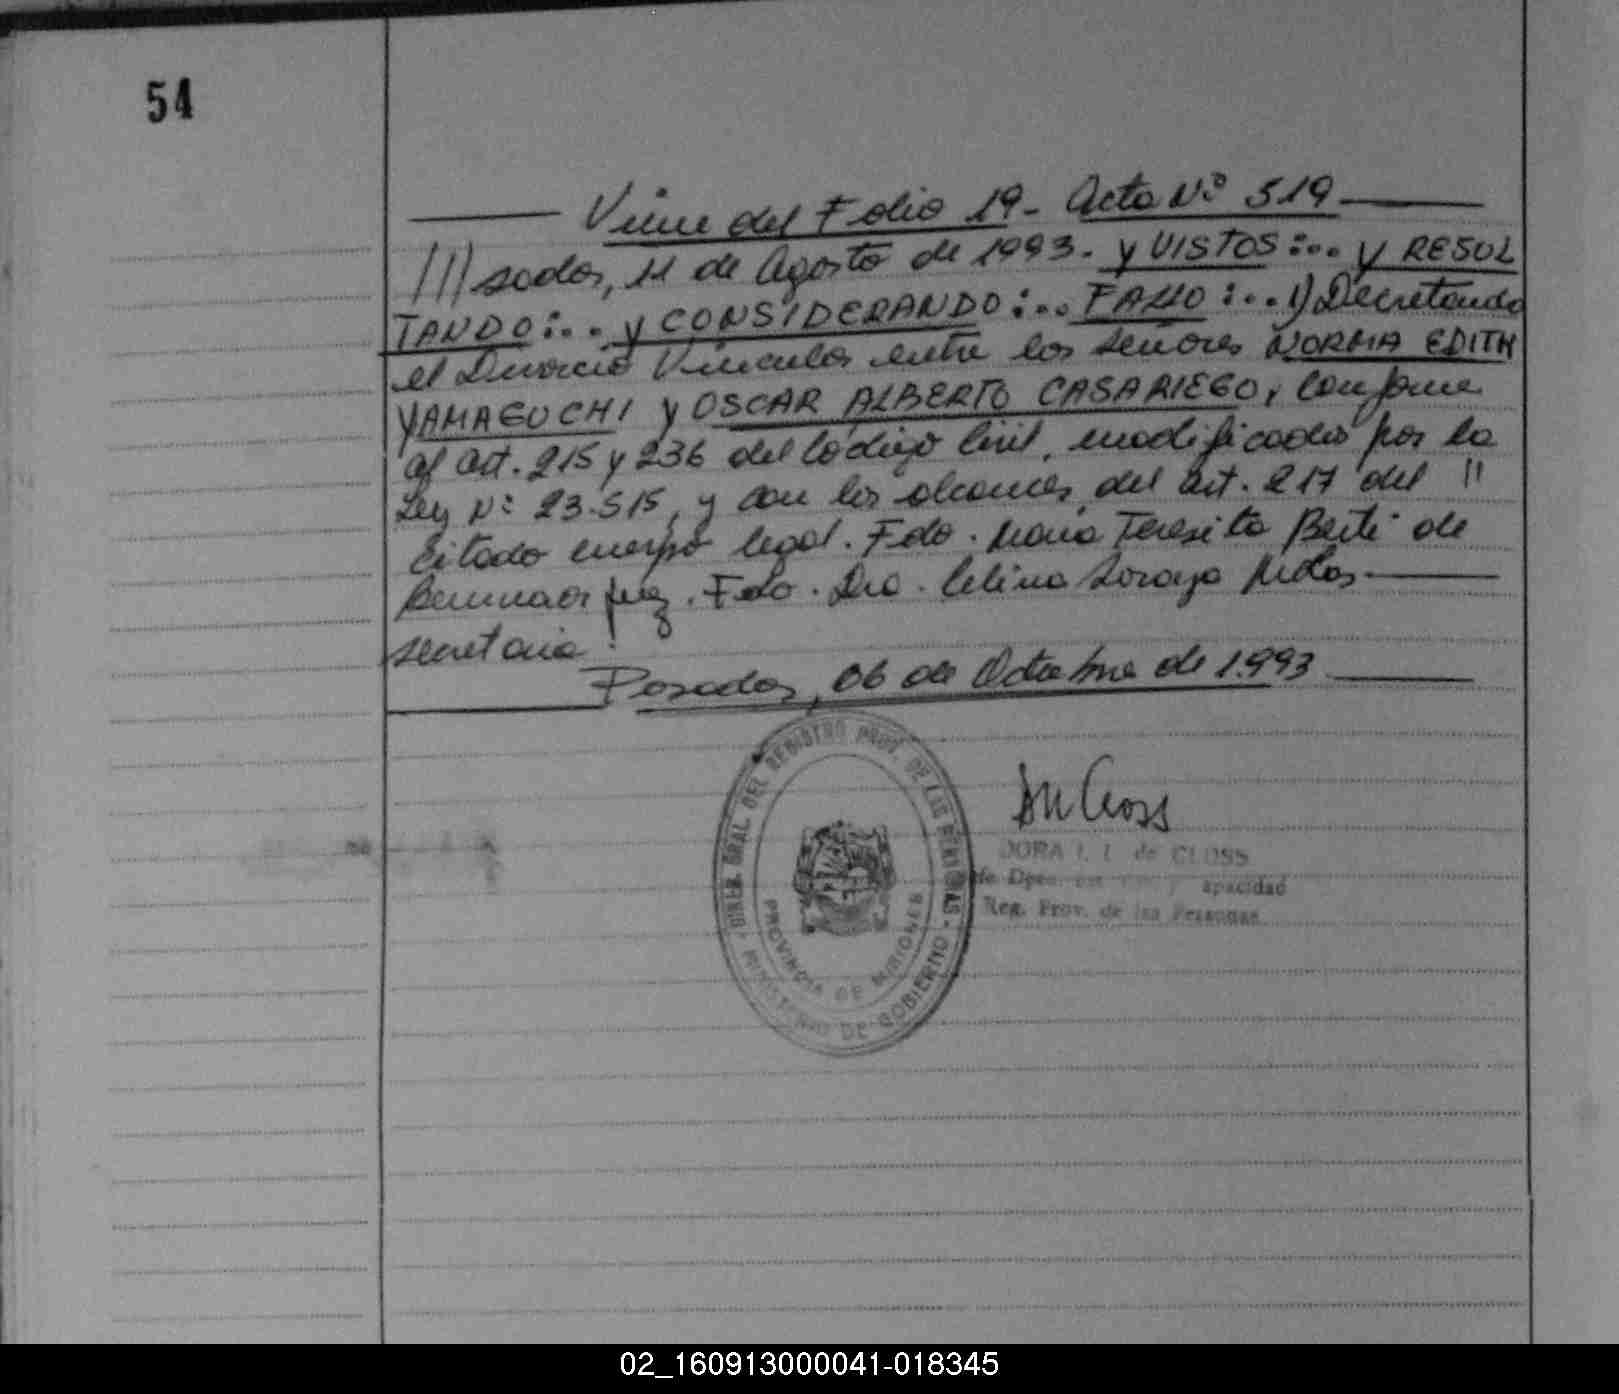 54
Viene del Folio 19 - Acta Nº 519
///sadas, 11 de Agosto de 1993. y VISTOS:... y RESUL
TANDO:... y CONSIDERANDO:... FALLO:... 1) Decretando
el Divorcio Vincular entre los señores NORMA EDITH
YAMAGUCHI y OSCAR ALBERTO CASARIEGO, conforme
al art. 215 y 236 del Código Civil, modificados por la
Ley Nº 23.515, y con los alcances del art. 217 del //
citado cuerpo legal. Fdo. María Teresita Berti de
juez. Fdo. Dra. Celina Soraya
secretaria.
Posadas, 06 de Octubre de 1993
DIREC. GRAL. DEL REGISTRO PROV. DE LAS PERSONAS
MINISTERIO DE GOBIERNO
PROVINCIA DE MISIONES
DORA de CLOSS
Dpto. y apacidad
Reg. Prov. de las Personas
02_160913000041-018345